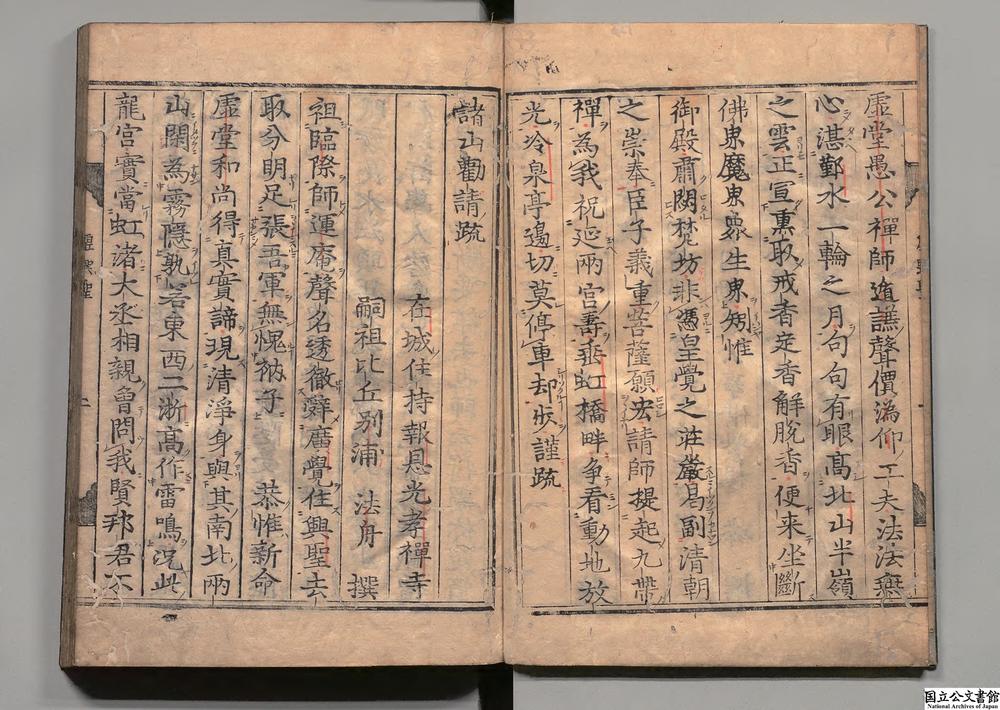 虛堂愚公禪師道譾聲價溈仰工夫法法無
心湛鄞水一輪之月句句有眼高北山半嶺
之雲正宣熏取戒香定香解脫香便來坐斷
佛界魔界眾生界矧惟
御殿肅開梵坊非憑皇覺之莊嚴曷副清朝
之崇奉臣子義重菩薩願宏請師提起九帶
禪為我祝延兩宮壽垂虹橋畔爭看動地放
光冷泉亭邊切莫停車却步謹疏
諸山勸請疏
在城住持報恩光孝禪寺
嗣祖比丘別浦 法舟 撰
祖臨際師運庵聲名透徹辭廣覺住興聖去
取分明足張吾軍無愧衲子 恭惟新命
虛堂和尚得真實諦現清淨身與其南北兩
山閑為霧隱孰若東西二浙高作雷鳴況此
龍宮實當虹渚大丞相親曾問我賢邦君不
国立公文書館
National Archives of Japan